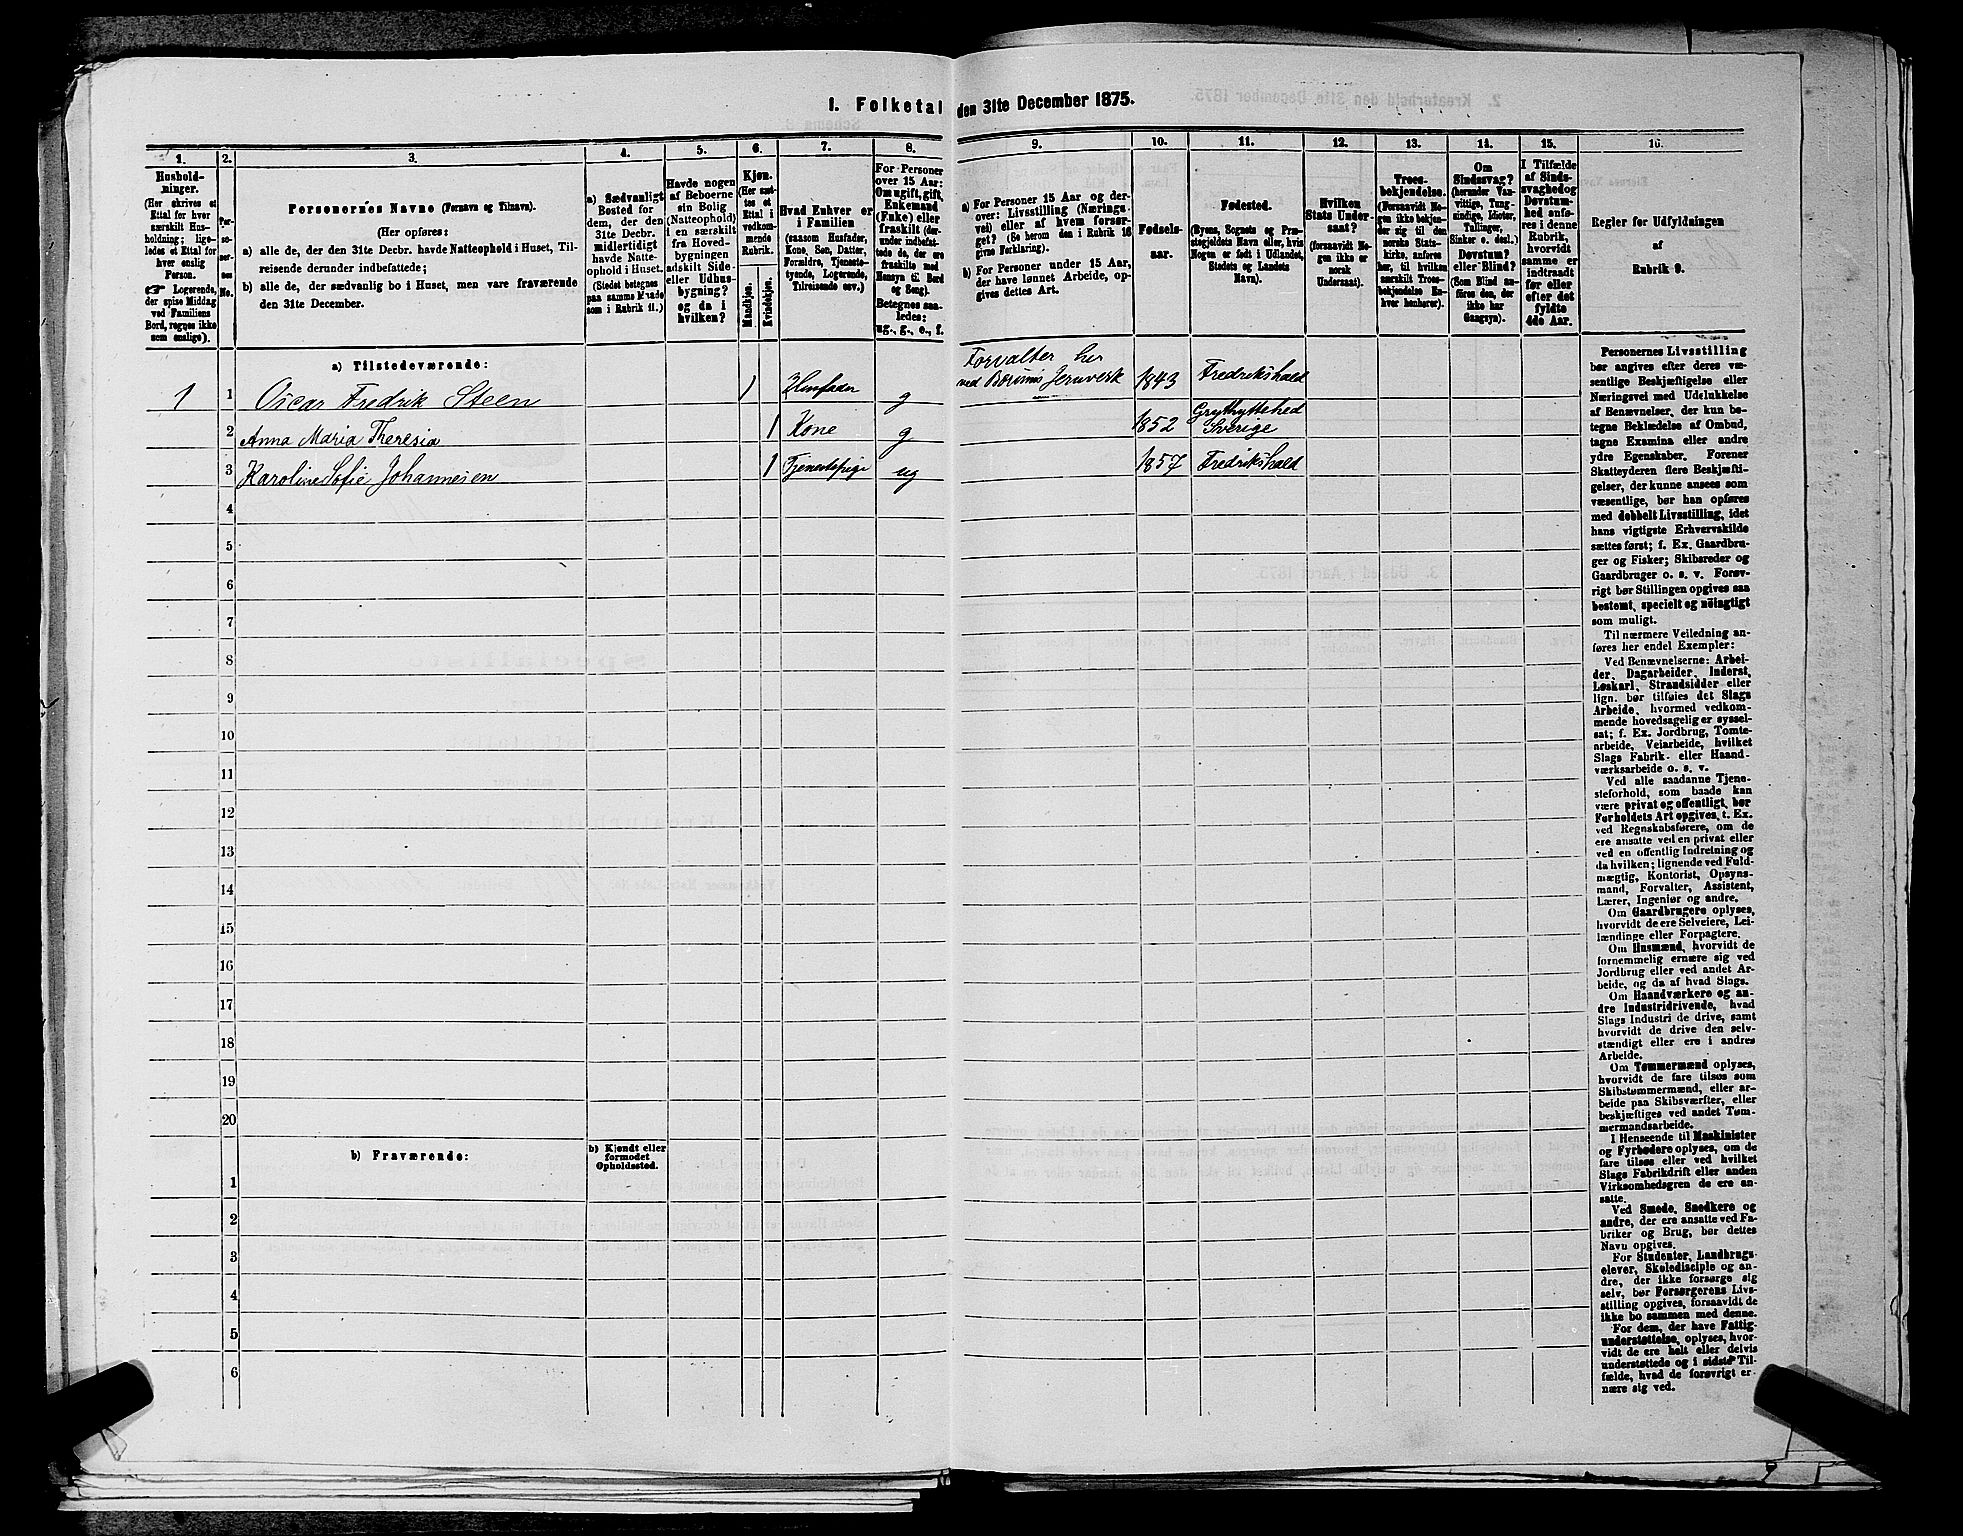 1. Folketal den 31te December 1875.
1.
2.
3.
4.
5.
6.
7.
8.
9.
10.
11.
12.
13.
14.
15.
16.
Hushold-
ninger.
(Her skrives et
Ettal for hver
særskilt Hus-
holdning; lige-
ledes et Ettal for
hver enslig
Person.
☞ Logerende,
der spise Middag
ved Familiens
Bord, regnes ikke
som enslige).
Per-
so-
ner-
nes
No.
Personernes Navne (Fornavn og Tilnavn).
(Her opføres:
a) alle de, der den 31te Decbr. havde Natteophold i Huset, Til-
reisende derunder indbefattede;
b) alle de, der sædvanlig bo i Huset, men vare fraværende
den 31te December.
a) Sædvanligt
Bosted for
dem, der den
31te Decbr.
midlertidigt
havde Natte-
ophold i Huset.
(Stedet betegnes
paa samme Maade
som i Rubrik 11.)
Havde nogen
af Beboerne
sin Bolig
(Natteophold)
i en særskilt
fra Hoved-
bygningen
adskilt Side-
eller Udhus-
bygning?
og da i
hvilken?
Kjøn.
(Her sæt-
tes et
Ettal i
vedkom-
mende
Rubrik.
Mandkjøn.
Kvindekjøn.
Hvad Enhver er
i Familien
(saasom Husfader,
Kone, Søn, Datter,
Forældre, Tjeneste-
tyende, Logerende,
Tilreisende osv.)
For Personer
over 15 Aar:
Om ugift, gift,
Enkemand
(Enke) eller
fraskilt (der-
under indbefat-
tede de, der ere
fraskilte med
Hensyn til Bord
og Seng).
Betegnes saa-
ledes:
ug., g., e., f.
a) For Personer 15 Aar og der-
over: Livsstilling (Nærings-
vei) eller af hvem forsør-
get? (Se herom den i Rubrik 16
givne Forklaring).
b) For Personer under 15 Aar,
der have lønnet Arbeide, op-
gives dettes Art.
Fødsels-
aar.
Fødested.
(Byens, Sognets og Præ-
stegjeldets Navn eller, hvis
Nogen er født i Udlandet,
Stedets og Landets
Navn).
Hvilken
Stats Under-
saat?
(forsaavidt No-
gen ikke er
norsk
Undersaat).
Troes-
bekjendelse.
(Forsaavidt No-
gen ikke bekjen-
der sig til den
norske Stats-
kirke, anføres
her, til hvilken
særskilt Troes-
bekjendelse En-
hver henhører).
Om
Sindssvag?
(herunder Van-
vittige, Tung-
sindige, Idioter,
Tullinger,
Sinker o. desl.)
Døvstum?
eller Blind?
(Som Blind an-
føres den, der
ikke har
Gangsyn).
I Tilfælde
af Sinds-
svaghed og
Døvstum-
hed anfø-
res i denne
Rubrik,
hvorvidt
samme er
indtraadt
før eller
efter det
fyldte
4de Aar.
Regler for Udfyldningen
af
Rubrik 9.
a) Tilstedeværende:
1 1 Oscar Fredrik Steen 1 Husfader g Forvalter her
ved Bærums Jernverk 1843 Fredrikshald
2 Anna Maria Theresia 1 Kone g 1852 Grythyttehed
Sverige
3 Karoline Sofie Johannesen 1 Tjenestepige ug 1857 Fredrikshald
4
5
6
7
8
9
10
11
12
13
14
15
16
17
18
19
20
b) Fraværende:
b) Kjendt eller
formodet
Opholdssted.
1
2
3
4
5
6
Personernes Livsstilling
bør angives efter deres væ-
sentlige Beskjæftigelse eller
Næringsvei med Udelukkelse
af Benævnelser, der kun be-
tegne Beklædelse af Ombud,
tagne Examina eller andre
ydre Egenskaber. Forener
Skatteyderen flere Beskjæfti-
gelser, der kunne ansees som
væsentlige, bør han opføres
med dobbelt Livsstilling, idet
hans vigtigste Erhvervskilde
sættes først; f. Ex. Gaardbru-
ger og Fisker; Skibsreder og
Gaardbruger o. s. v. Forøv-
rigt bør Stillingen opgives saa
bestemt, specielt og nöiagtigt
som muligt.
Til nærmere Veiledning an-
føres her endel Exempler:
Ved Benævnelserne: Arbei-
der, Dagarbeider, Inderst,
Løskarl, Strandsidder eller
lign. bør tilføies det Slags
Arbeide, hvormed vedkom-
mende hovedsagelig er syssel-
sat; f. Ex. Jordbrug, Tomte-
arbeide, Veiarbeide, hvilket
Slags Fabrik- eller Haand-
værksarbeide o. s. v.
Ved alle saadanne Tjene-
steforhold, som baade kan
være privat og offentligt, bør
Forholdets Art opgives, t. Ex.
ved Regnskabsførere, om de
ere ansatte ved en privat eller
ved en offentlig Indretning og
da hvilken; lignende ved Fuld-
mægtig, Kontorist, Opsyns-
mand, Forvalter, Assistent,
Lærer, Ingeniør og andre.
Om Gaardbrugere oplyses,
hvorvidt de ere Selveiere, Lei-
lændinge eller Forpagtere.
Om Husmænd, hvorvidt de
fornemmelig ernære sig ved
Jordbrug eller ved andet Ar-
beide, og da af hvad Slags.
Om Haandværkere og an-
dre Industridrivende, hvad
Slags Industri de drive, samt
hvorvidt de drive den selv-
stændigt eller ere i andres
Arbeide.
Om Tømmermænd oplyses,
hvorvidt de fare tilsøs som
Skibstømmermænd, eller ar-
beide paa Skibsværfter, eller
beskjæftiges ved andet Tøm-
mermandsarbeide.
I Henseende til Maskinister
og Fyrbødere oplyses, om de
fare tilsøs eller ved hvilket
Slags Fabrikdrift eller anden
Virksomhedsgren de ere an-
satte.
Ved Smede, Snedkere og
andre, der ere ansatte ved Fa-
briker og Brug, bør dettes
Navn opgives.
For Studenter, Landbrugs-
elever, Skoledisciple og an-
dre, der ikke forsørge sig
selv, bør Forsørgerens Livs-
stilling opgives, forsaavidt de
ikke bo sammen med denne.
For dem, der have Fattig-
understøttelse, oplyses, hvor-
vidt de ere helt eller delvis
understøttede og i sidste Til-
fælde, hvad de forøvrigt er-
nære sig ved.